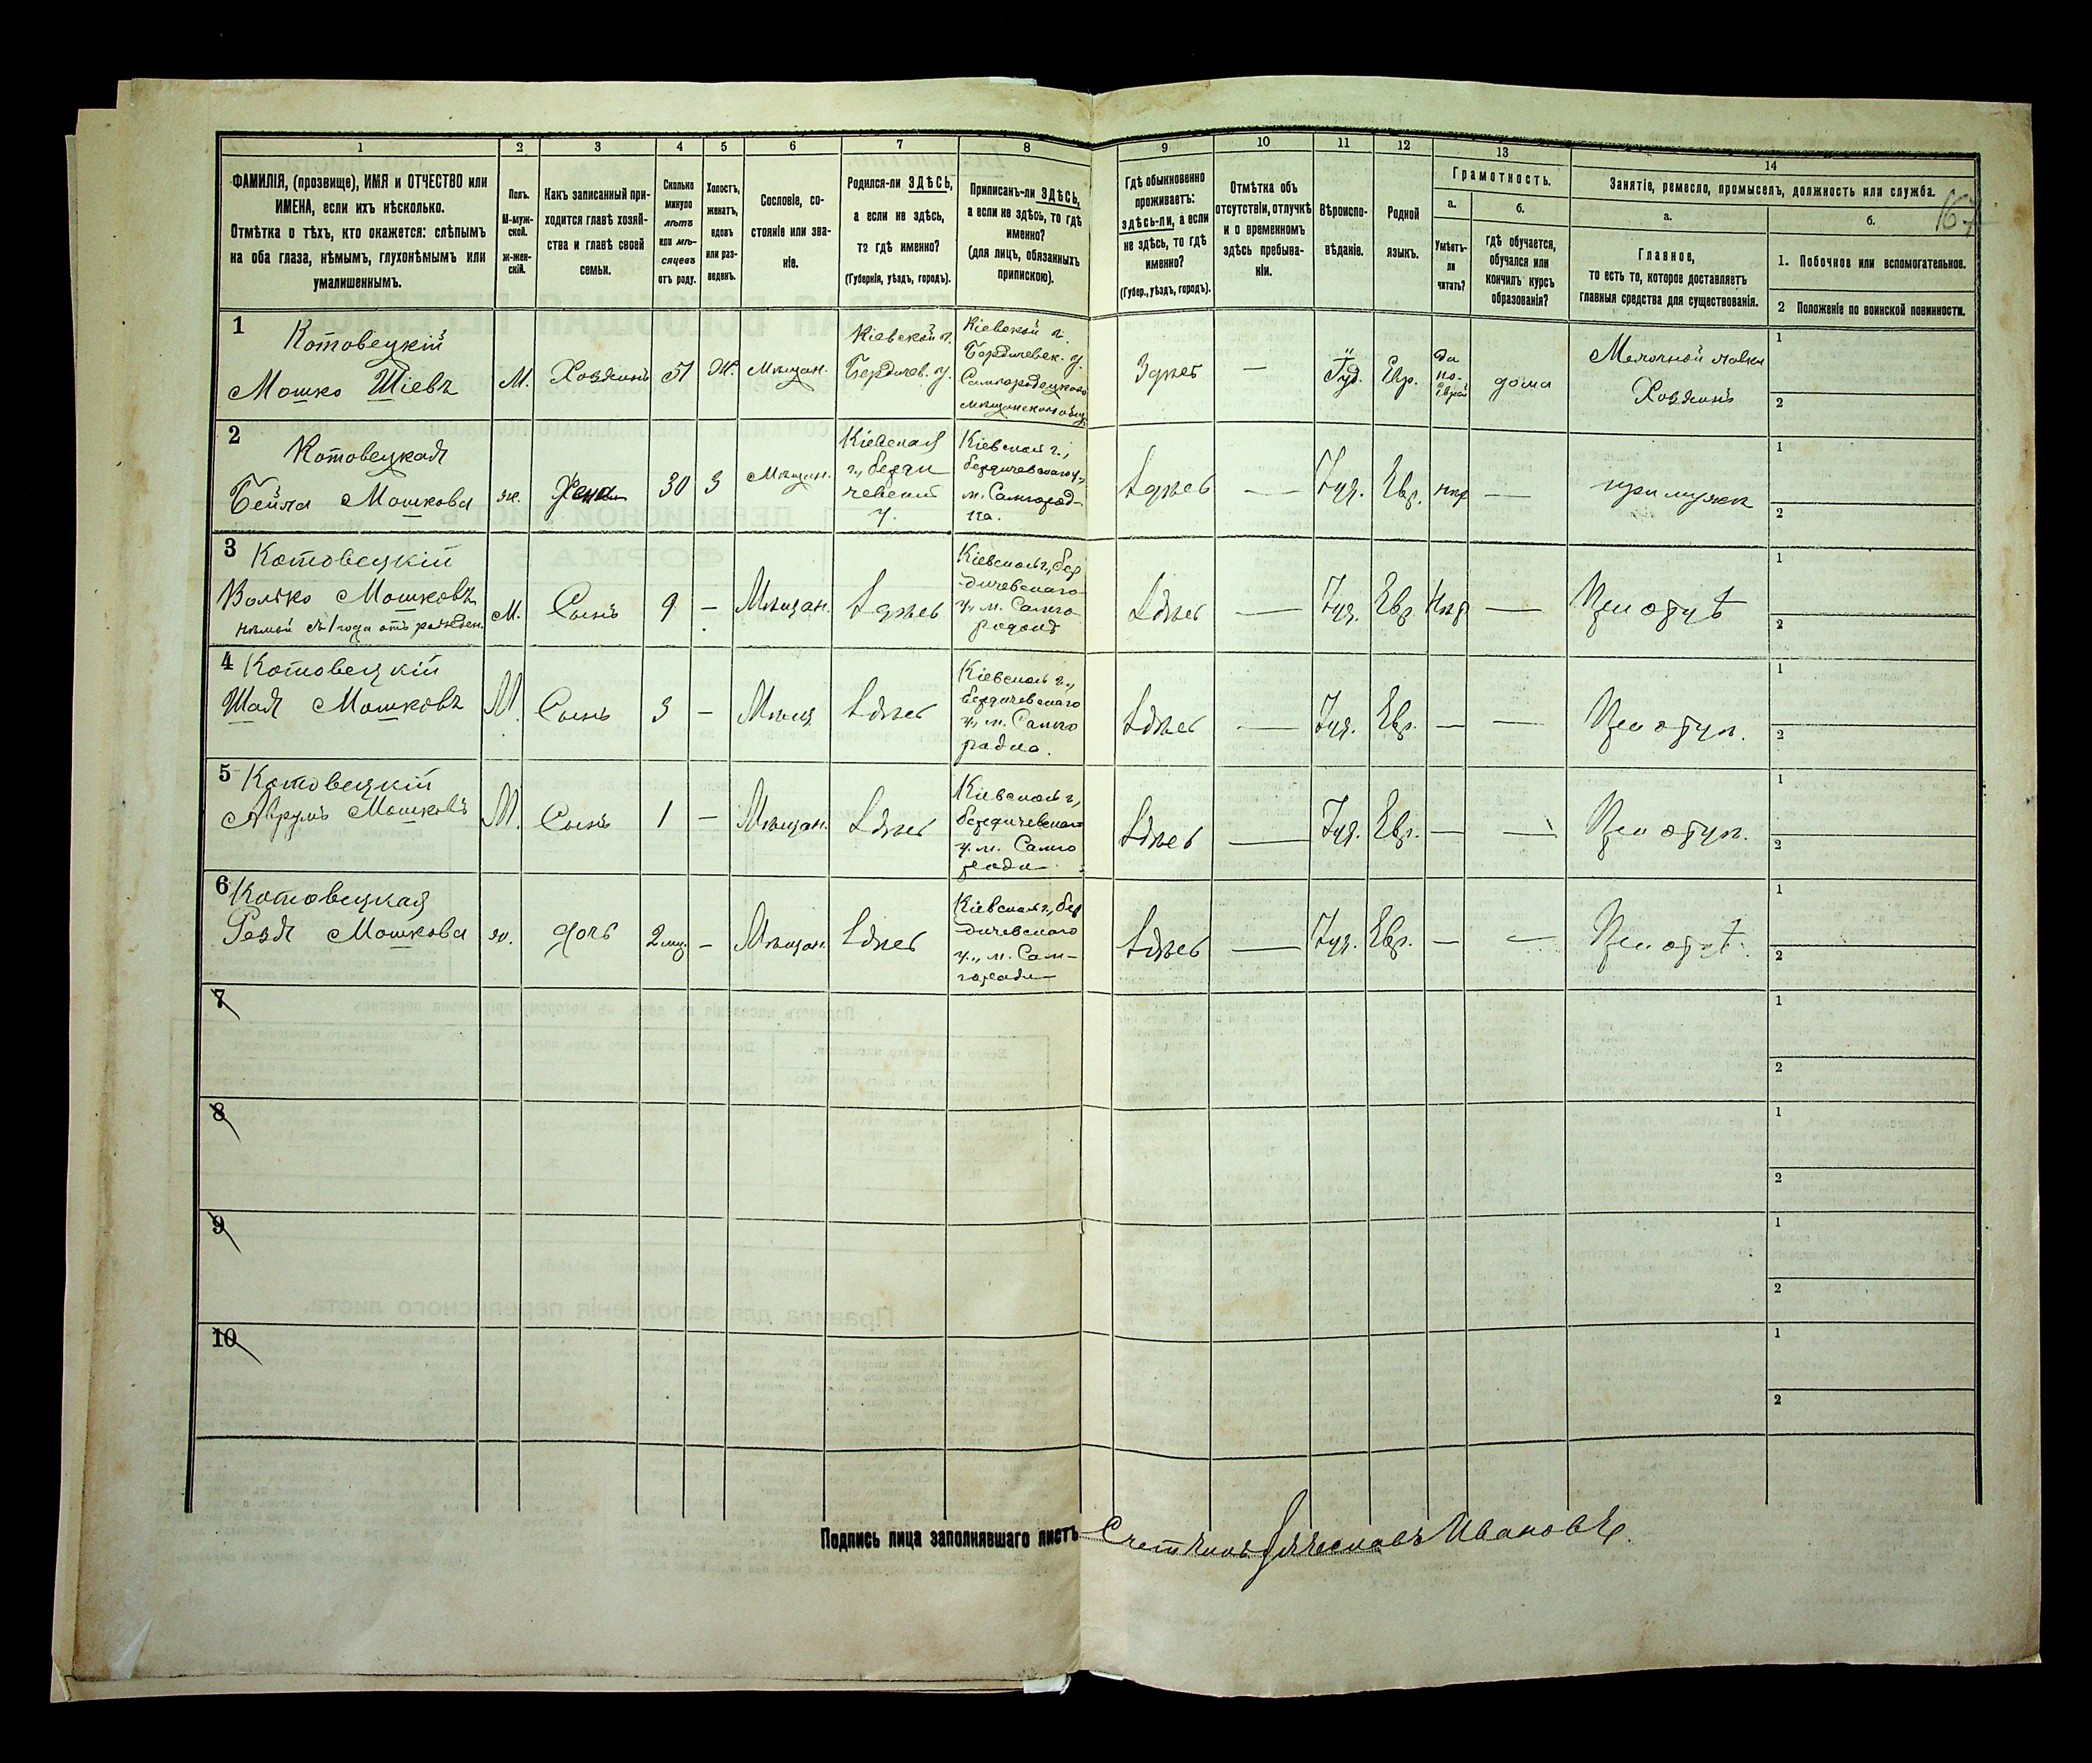 1 2 3 4 5 6 7 8 9 10 11 12 13 14
ФАМИЛІЯ, (прозвище), ИМЯ и ОТЧЕСТВО или
ИМЕНА, если ихъ нѣсколько.
Отмѣтка о тѣхъ, кто окажется: слѣпымъ
на оба глаза, нѣмымъ, глухонѣмымъ или
умалишеннымъ.
Полъ.
М-муж-
ской.
ж-жен-
скій.
Какъ записанный при-
ходится главѣ хозяй-
ства и главѣ своей
семьи.
Сколько
минуло
лѣтъ
или мѣ-
сяцевъ
отъ роду.
Холостъ,
женатъ,
вдовъ
или раз-
веденъ.
Сословіе, со-
стояніе или зва-
ніе.
Родился-ли ЗДѢСЬ,
а если не здѣсь,
то гдѣ именно?
(Губернія, уѣздъ, городъ).
Приписанъ-ли ЗДѢСЬ,
а если не здѣсь, то гдѣ
именно?
(для лицъ, обязанныхъ
припискою).
Гдѣ обыкновенно
проживаетъ:
здѣсь-ли, а если
не здѣсь, то гдѣ
именно?
(Губер., уѣздъ, городъ).
Отмѣтка объ
отсутствіи, отлучкѣ
и о временномъ
здѣсь пребыва-
ніи.
Вѣроиспо-
вѣданіе.
Родной
языкъ.
Грамотность.
а.
Умѣетъ-
ли
читать?
б.
Гдѣ обучается,
обучался или
кончилъ курсъ
образованія?
Занятіе, ремесло, промыселъ, должность или служба.
а.
Главное,
то есть то, которое доставляетъ
главныя средства для существованія.
б.
1. Побочное или вспомогательное.
2 Положеніе по воинской повинности.
167
1
Котовецкій
Мошко Шіевъ
М.
Хозяинъ
51
Ж.
Мѣщан.
Кіевской г.
Бердичев. у.
Кіевской г.
Бердичевск. у.
Самгородецкого
мѣщанского общ.
Здѣсь
—
Іуд.
Евр.
да
по-
еврей
дома
Мелочной лавки
Хозяинъ
1
2
2
Котовецкая
Бейла Мошкова
ж.
Жена
30
З
Мѣщан.
Кіевская
г., берди
чевскій
у.
Кіевской г.,
бердичевского у.,
м. Самгород-
ка.
Здѣсь
—
Іуд.
Евр.
нѣт
—
при мужѣ
1
2
3
Котовецкій
Волько Мошковъ
нѣмой съ 1 года отъ рожден.
М.
Сынъ
9
—
Мѣщан.
Здѣсь
Кіевской г., бер
дичевского
у., м. Самго
родокъ
Здѣсь
—
Іуд.
Евр.
Нѣт
—
При отцѣ
1
2
4
Котовецкій
Шая Мошковъ
М.
Сынъ
3
—
Мѣщ
Здѣсь
Кіевской г.,
бердичевского
у., м. Самго
родка.
Здѣсь
—
Іуд.
Евр.
—
—
При отцѣ.
1
2
5
Котовецкій
Аврумъ Мошковъ
М.
Сынъ
1
—
Мѣщан.
Здѣсь
Кіевской г.,
бердичевского
у. м. Самго
родка
Здѣсь
—
Іуд.
Евр.
—
—
При отцѣ.
1
2
6
Котовецкая
Рейзя Мошкова
ж.
дочь
2 мц.
—
Мѣщан.
Здѣсь
Кіевской г., бер
дичевского
у., м. Сам-
городка
Здѣсь
—
Іуд.
Евр.
—
—
При отцѣ.
1
2
7
1
2
8
1
2
9
1
2
10
1
2
Подпись лица заполнявшаго листъ Счетчикъ Вячеславъ Ивановъ